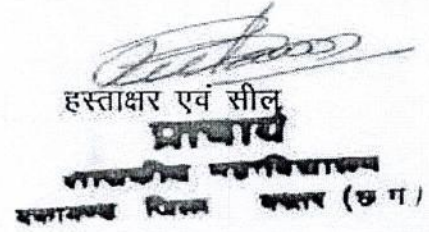 हस्ताक्षर एवं सील
प्राचार्य
शासकीय महाविद्यालय
जिला बस्तर (छ ग)